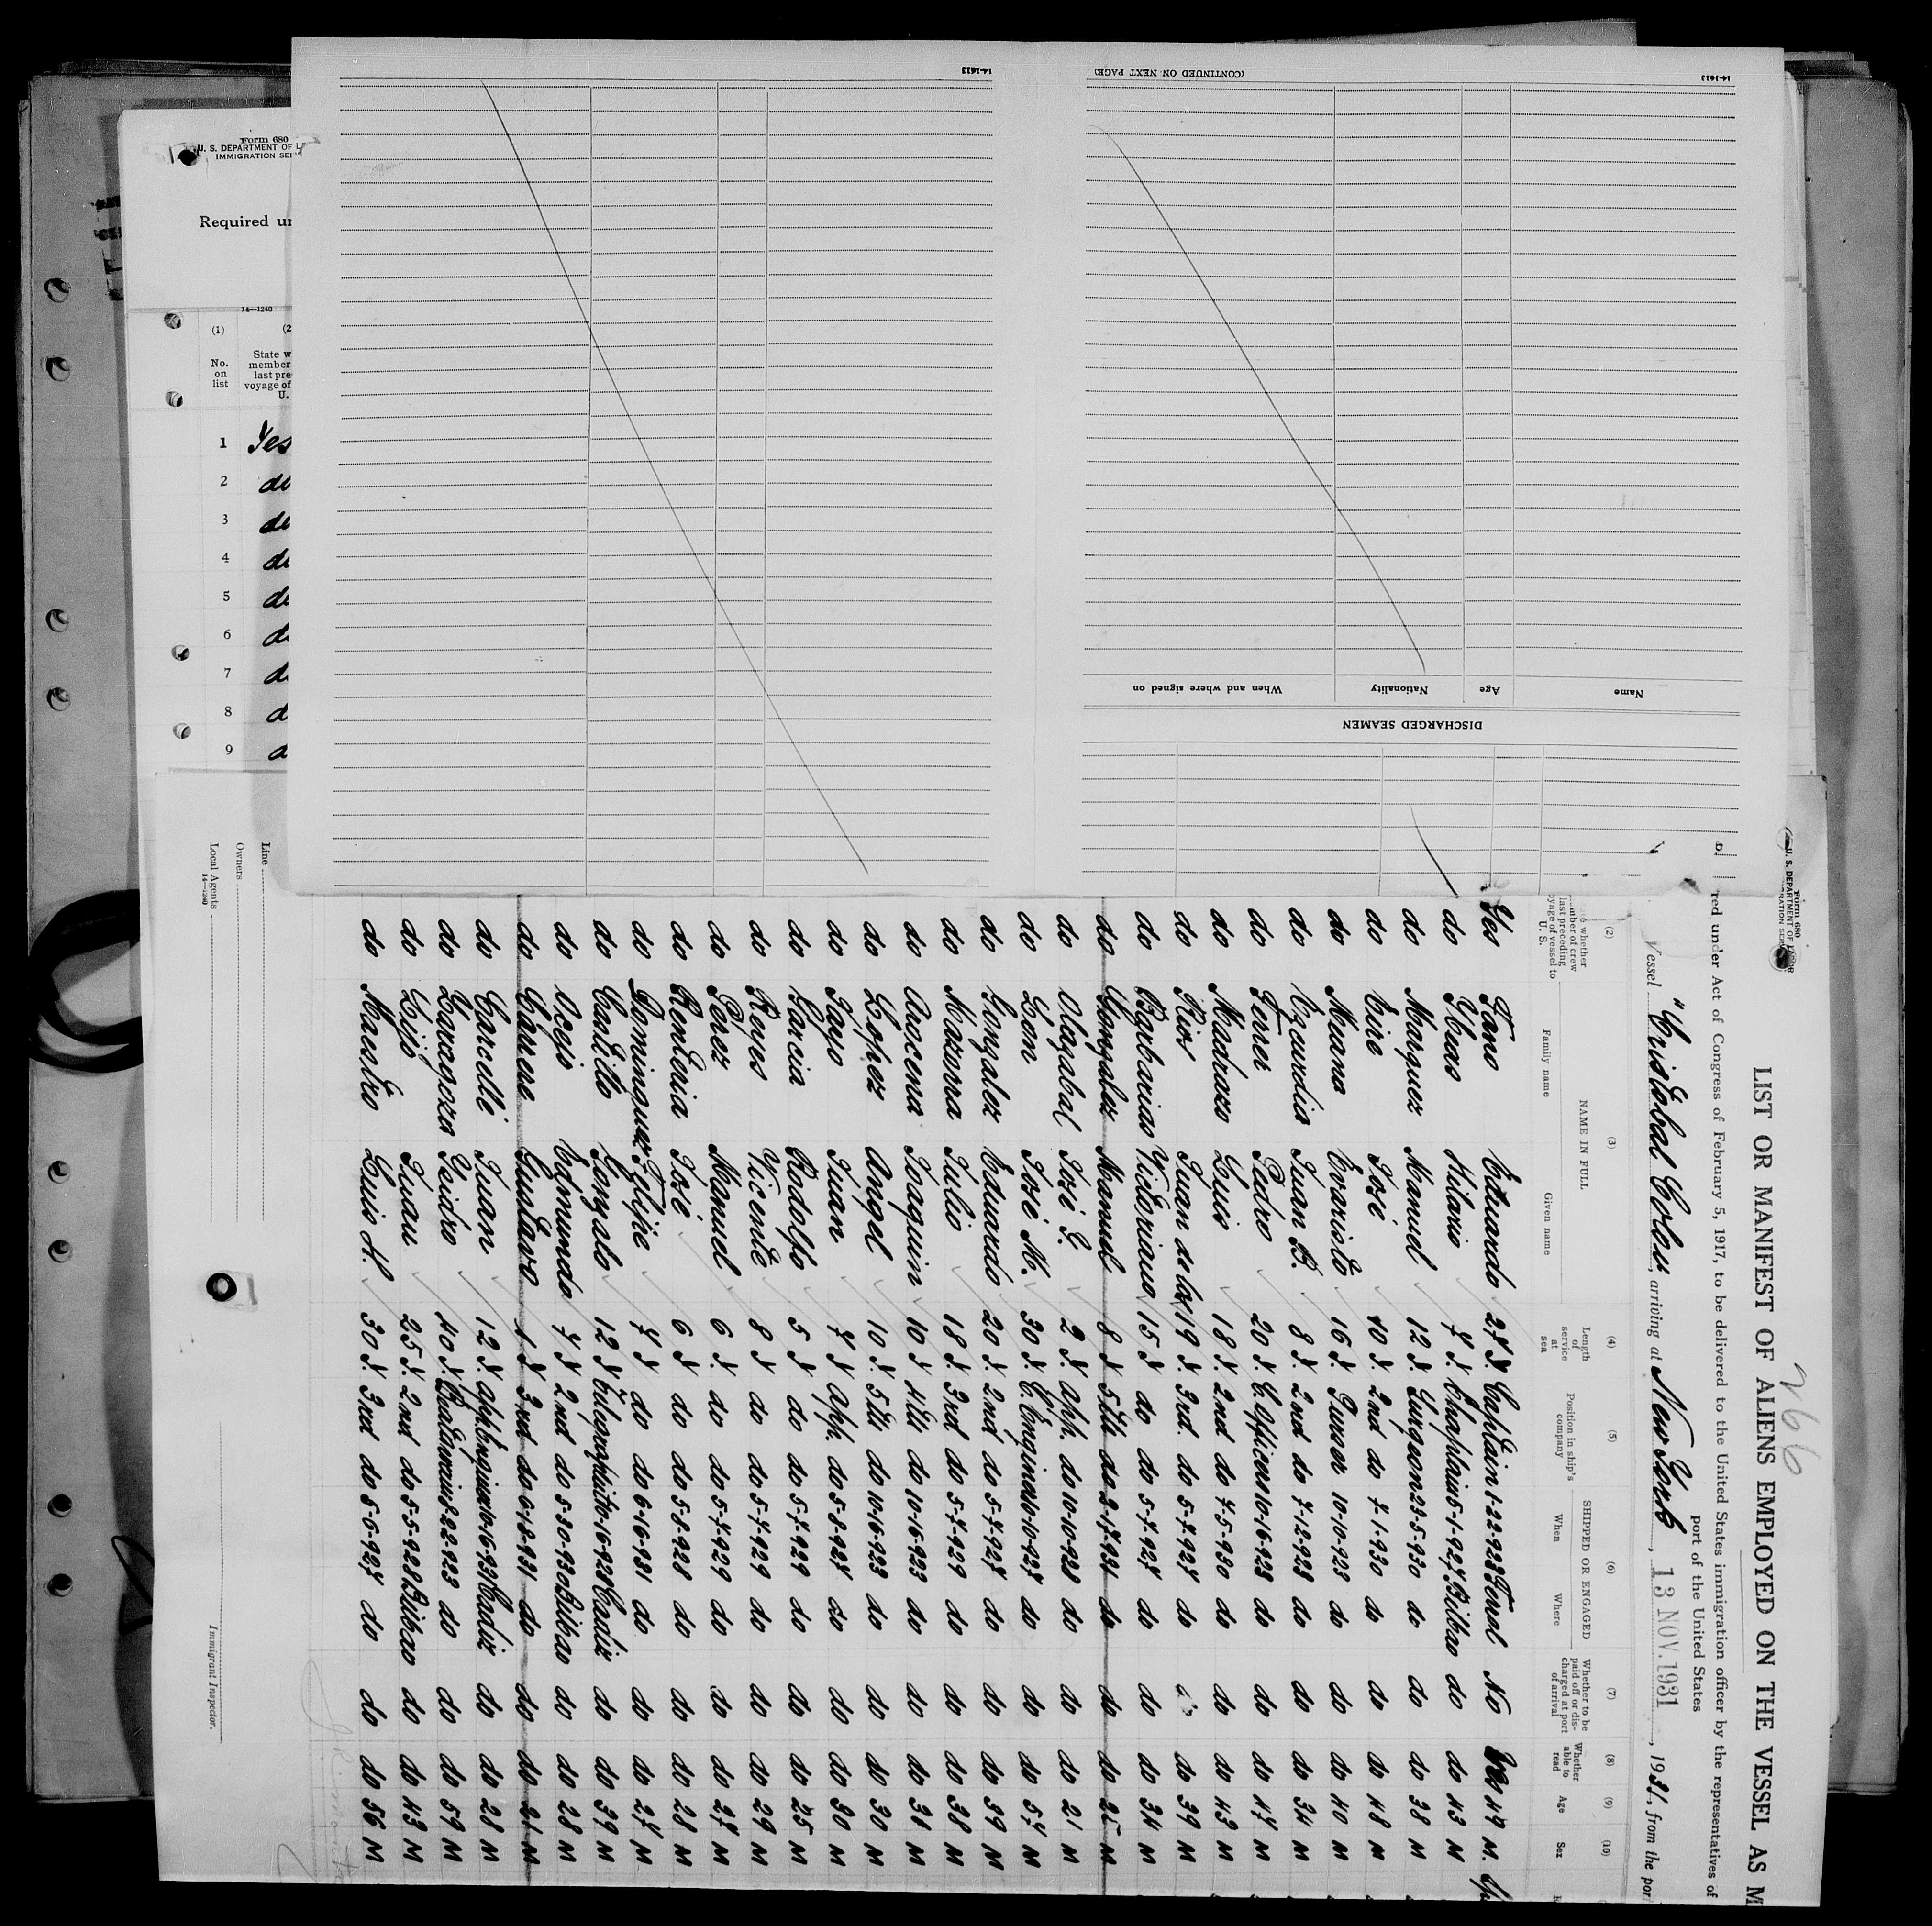 14-1613
(CONTINUED ON NEXT PAGE)
14-1613
Name
Age
Nationality
When and where signed on
DISCHARGED SEAMEN
Form 680
U. S. DEPARTMENT OF L
IMMIGRATION SER
Required un
14-1240
(1)
(2
No. on list
State w
member
last pre
voyage of
U.
1 Yes
2 do
3 do
4 do
5 do
6 do
7 do
8 d
9 d
Form 680
U. S. DEPARTMENT OF LABOR
266
LIST OR MANIFEST OF ALIENS EMPLOYED ON THE VESSEL AS M
red under Act of Congress of February 5, 1917, to be delivered to the United States immigration officer by the representatives of
port of the United States
Vessel "Cristobal Colon, arriving at New York, 13 NOV. 1931, 1931, from the por
(2) (3) (4) (5) (6) (7) (8) (9) (10)
whether
mber of crew
last preceding
oyage of vessel to
U. S.
NAME IN FULL
Family name
Given name
Length of service at sea
Position in ship's company
SHIPPED OR ENGAGED
When
Where
Whether to be paid off or discharged at port of arrival
Whether able to read
Age
Sex
Yes Fano Eduardo 27 Captain 1-22-928 Ferrol No Yes 49 M.
do Hilario 7 Chaplain 5-1-927 Bilbao do do 43 M
do Marquez Manuel 12 Surgeon 23-5-930 do do do 38 M
do Eire José 10 2nd do 7-1-930 do do do 48 M
do Muana Evaristo 16 Purser 10-10-923 do do do 40 M
do Juan B. 8 2nd do 7-12-928 do do do 34 M
do Ferrer Pedro 20 C. Officer 10-16-923 do do do 47 M
do Madrazo Luis 18 2nd do 7-5-930 do do do 43 M
do Rios Juan de los 19 3rd. do 5-7-927 do do 39 M
do Barbarias Victoriano 15 do do 5-7-927 do do do 34 M
do Gonzalez Manuel 8 5th do 2-17-931 do do do 25 M
do Olagabal José G. 2 app. do 10-10-928 do do do 21 M
do Leon José M. 30 C. Engineer 10-10-927 do do do 57 M
do Gonzalez Eduardo 20 2nd do 5-7-927 do do do 39 M
do Mazorra Julio 18 3rd do 5-7-929 do do do 38 M
do Arocena Joaquin 10 4th do 10-16-923 do do do 31 M
do Lopez Angel 10 5th do 10-16-923 do do do 30 M
do Juan 7 app. do 5-8-927 do do do 30 M
do Garcia Rodolfo 5 do do 5-7-929 do do do 25 M
do Reyes Vicente 8 do do 5-7-929 do do do 29 M
do Perez Manuel 6 do do 5-7-929 do do do 27 M
do Renteria José 6 do do 5-8-928 do do do 28 M
do Dominguez Felipe 7 do do 6-16-931 do do do 27 M
do Castillo Gonzalo 12 10-16-928 Cadiz do do 39 M
do Ocejo Edmundo 7 2nd do 5-30-930 Bilbao do do 28 M
do Carrere Gustavo 1 3rd do 6-18-931 do do do 21 M
do Carcelle Juan 12 10-16-931 Cadiz do do 28 M
do Zaragoza Isidro 40 8-22-923 do do do 59 M
do Lijó Juan 25 2nd do 5-5-928 Bilbao do do 43 M
do Maestro Luis H. 30 3rd do 5-6-927 do do do 56 M
Line
Owners
Local Agents
14-1240
Immigrant Inspector.